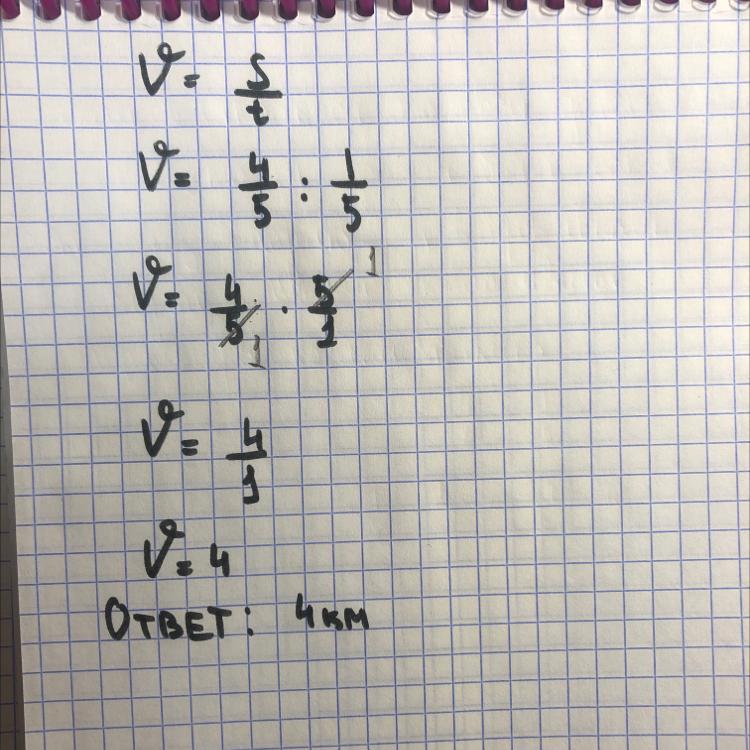 V = S/t
V = 4/5 : 1/5
V = 4/5 1 · 5/1 1
V = 4/1
V = 4
ОТВЕТ: 4 км